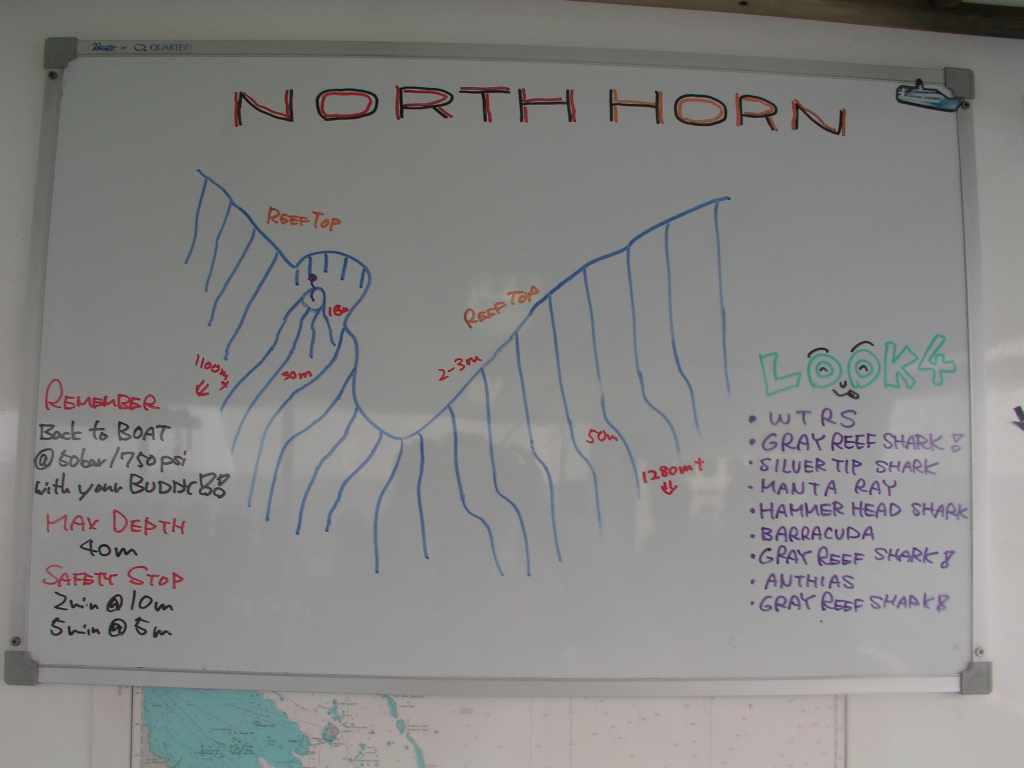 QUARTET
NORTH HORN
REEF TOP
18m
REEF TOP
2-3m
1100m+
30m
50m
1280m+
REMEMBER
Back to BOAT
@ 50bar/750psi
with your BUDDY!!
MAX DEPTH
40m
SAFETY STOP
2min @ 10m
5min @ 5m
LOOK4
• WTRS
• GRAY REEF SHARK!
• SILVER TIP SHARK
• MANTA RAY
• HAMMER HEAD SHARK
• BARRACUDA
• GRAY REEF SHARK!
• ANTHIAS
• GRAY REEF SHARK!